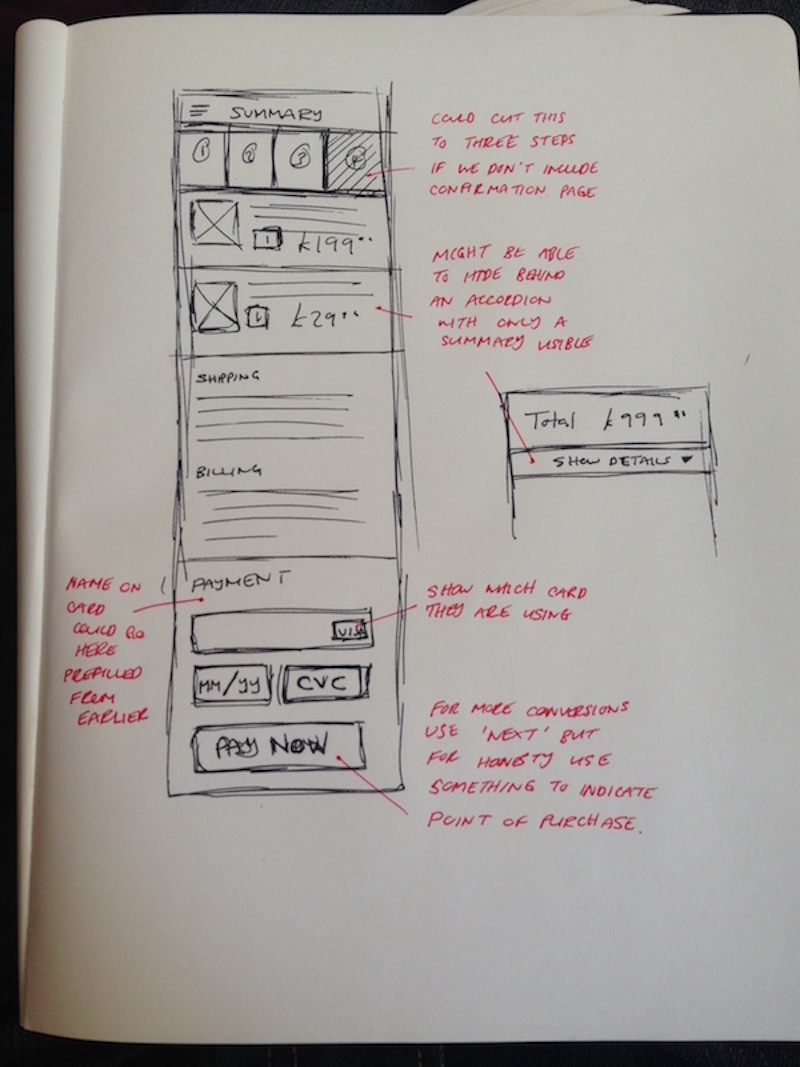 SUMMARY
1 2 3 4
1 £199.00
1 £29.00
SHIPPING
BILLING
PAYMENT
VISA
MM/YY CVC
PAY NOW
COULD CUT THIS
TO THREE STEPS
IF WE DON'T INCLUDE
CONFIRMATION PAGE
MIGHT BE ABLE
TO HIDE BEHIND
AN ACCORDION
WITH ONLY A
SUMMARY VISIBLE
Total £999.00
SHOW DETAILS ▼
NAME ON
CARD
COULD GO
HERE
PREFILLED
FROM
EARLIER
SHOW WHICH CARD
THEY ARE USING
FOR MORE CONVERSIONS
USE 'NEXT' BUT
FOR HONESTY USE
SOMETHING TO INDICATE
POINT OF PURCHASE.